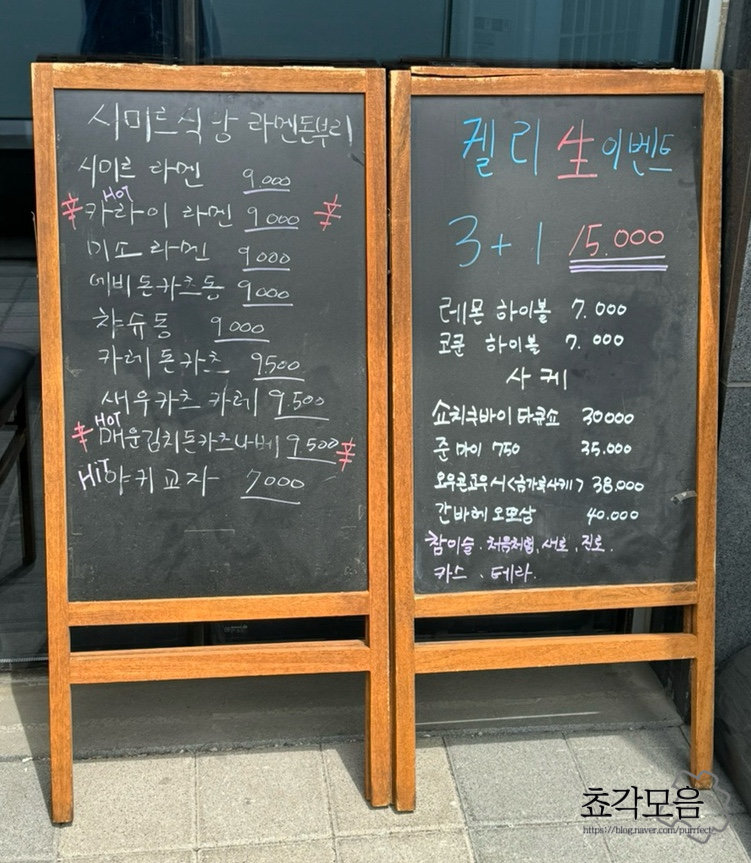 시미르식당 라멘돈부리
시미르 라멘 9.000
HOT
辛 카라이 라멘 9.000 辛
미소 라멘 9000
에비돈카츠동 9000
챠슈동 9000
카레돈카츠 9500
새우카츠 카레 9.500
HOT
辛 매운김치돈카츠나베 9.500 辛
HIT 야키교자 7000
켈리 生 이벤트
3+1 15.000
레몬 하이볼 7.000
코쿤 하이볼 7.000
사케
쇼치쿠바이 타큐쇼 30000
준마이 750 35.000
38.000
간바레 오또상 40.000
참이슬. 처음처럼, 새로, 진로.
카스. 테라.
쵸각모음
https://blog.naver.com/purrfect